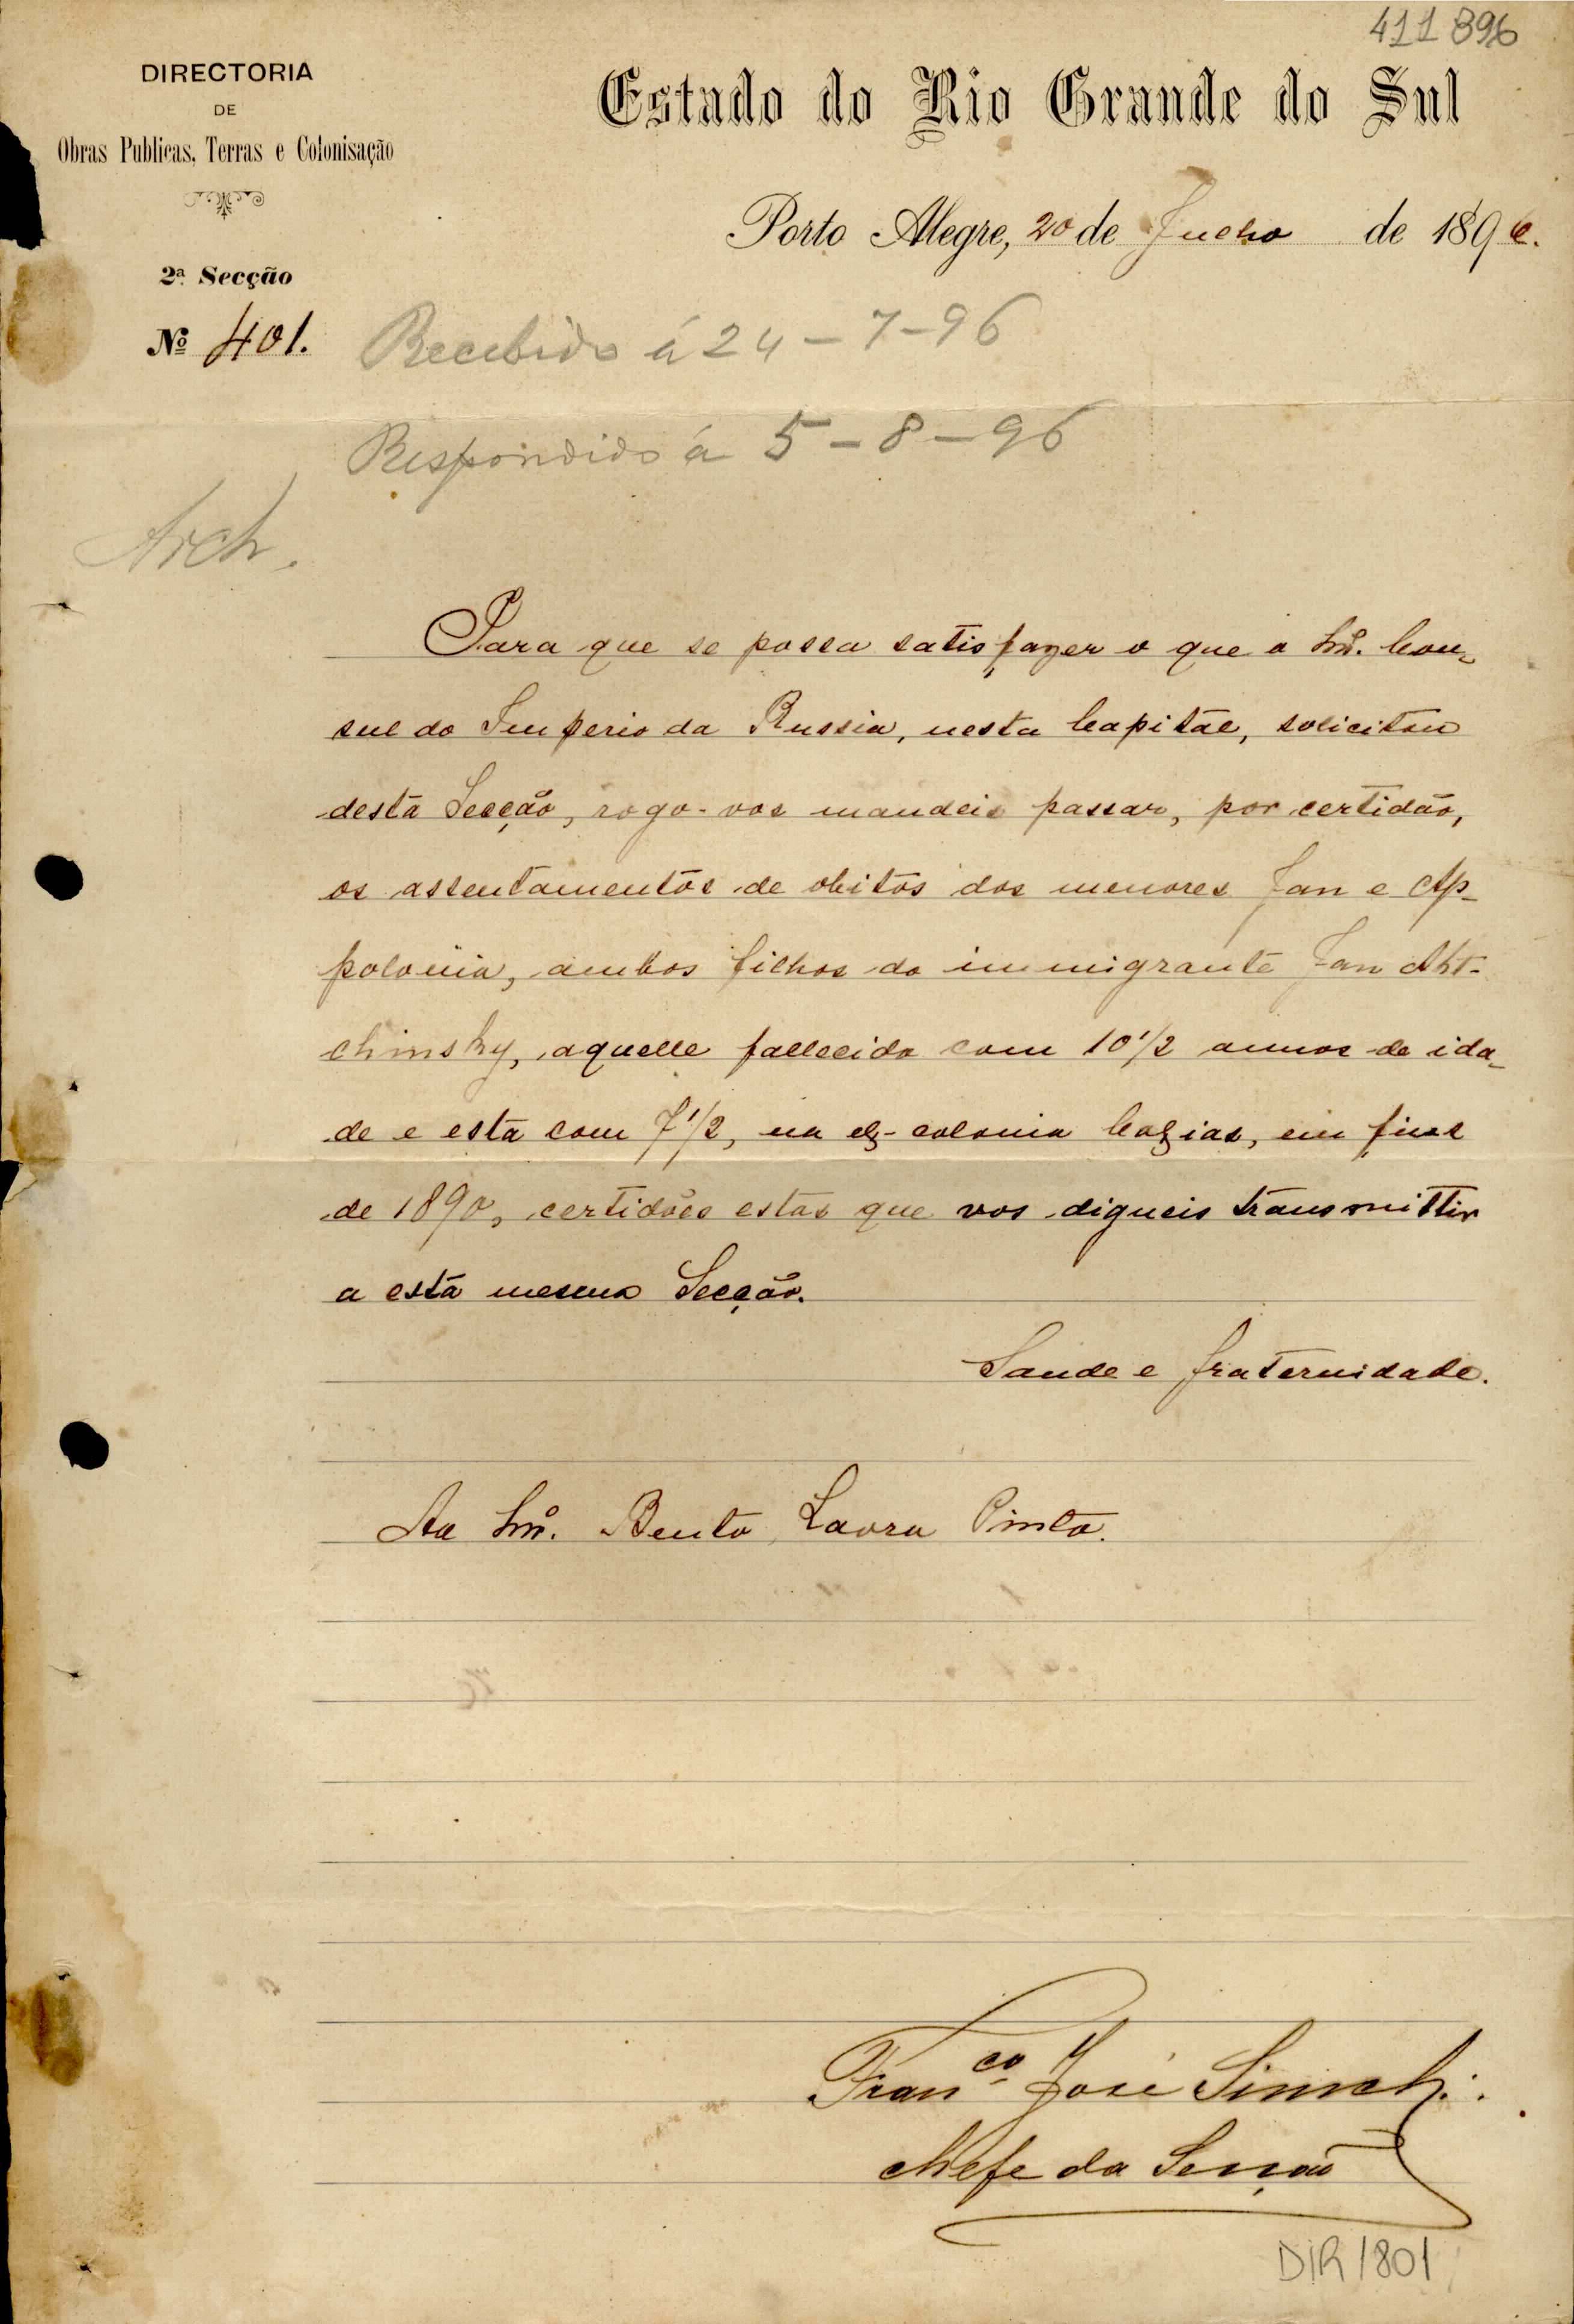 411 896
DIRECTORIA
DE
Obras Publicas, Terras e Colonisação
Estado do Rio Grande do Sul
Porto Alegre, 20 de Julho de 1896.
2ª Secção
Nº 401.
Recebido á 24-7-96
Respondido á 5-8-96
Arch.
Para que se possa satisfazer o que o Snr. Con-
sul do Imperio da Russia, nesta Capital, solicitou
desta Secção, rogo-vos mandeis passar, por certidão,
os assentamentos de obitos dos menores Jan e Ap-
polonia, ambos filhos do immigrante Jan Akt-
chinsky, aquelle fallecido com 10 1/2 annos de ida-
de e esta com 7 1/2, na ex-colonia Caxias, em fins
de 1890, certidões estas que vos digneis transmittir
a esta mesma Secção.
Saude e fraternidade.
Ao Snr. Bento Lavra Pinto.
Franco. José Simch.
Chefe da Secção
DIR/801